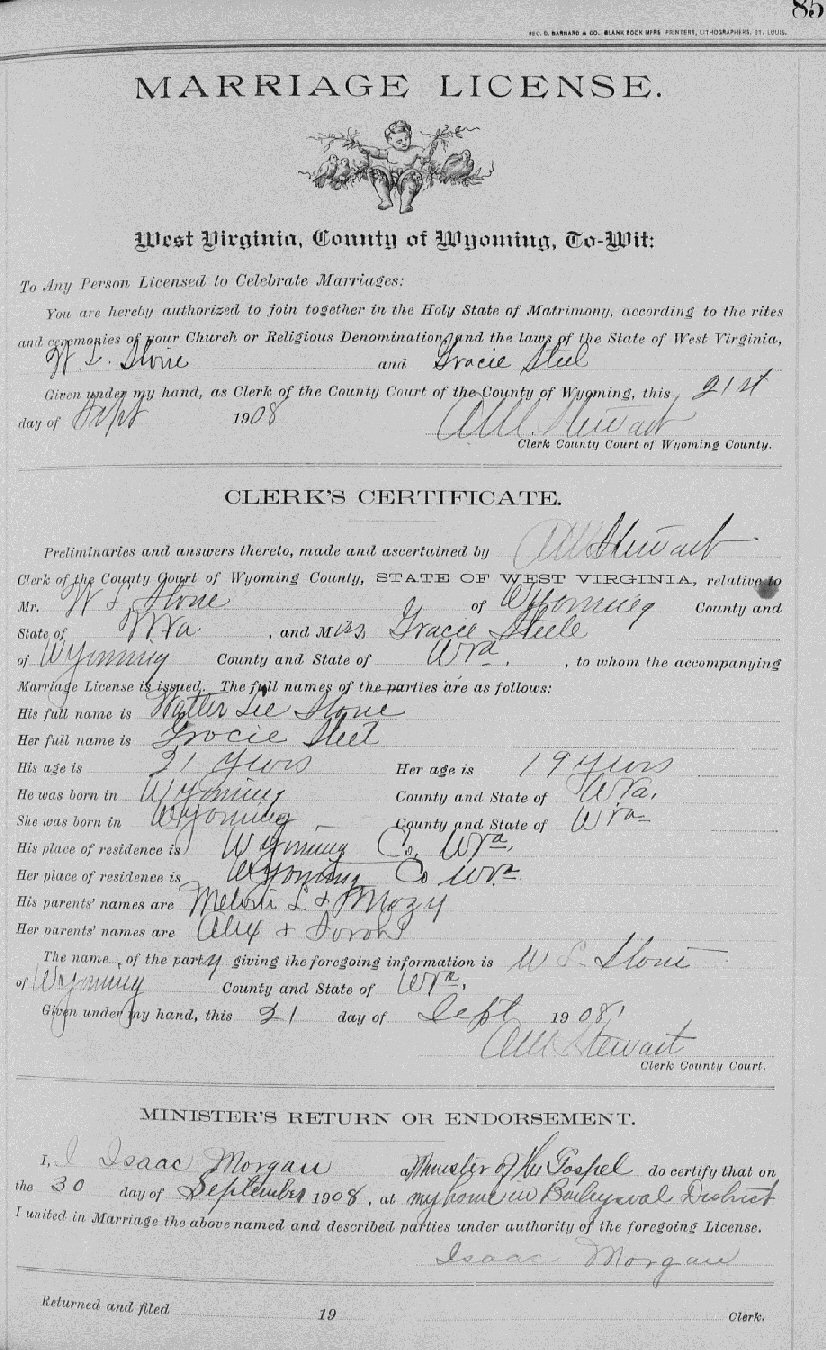 85
GEO. D. BARNARD & CO. BLANK BOOK MFRS. PRINTERS, LITHOGRAPHERS, ST. LOUIS.
MARRIAGE LICENSE.
West Virginia, County of Wyoming, To-Wit:
To Any Person Licensed to Celebrate Marriages:
You are hereby authorized to join together in the Holy State of Matrimony, according to the rites
and ceremonies of your Church or Religious Denomination, and the laws of the State of West Virginia,
W L. Stone and Gracie Steel
Given under my hand, as Clerk of the County Court of the County of Wyoming, this 21st
day of Sept 1908 Stewart
Clerk County Court of Wyoming County.
CLERK'S CERTIFICATE.
Preliminaries and answers thereto, made and ascertained by Stewart
Clerk of the County Court of Wyoming County, STATE OF WEST VIRGINIA, relative to
Mr. W L Stone of Wyoming County and
State of WVa , and Miss Gracie Steele
of Wyoming County and State of WVa. , to whom the accompanying
Marriage License is issued. The full names of the parties are as follows:
His full name is Walter Lee Stone
Her full name is Gracie Steel
His age is 21 years Her age is 19 years
He was born in Wyoming County and State of WVa.
She was born in Wyoming County and State of WVa
His place of residence is Wyoming Co, WVa.
Her place of residence is Wyoming Co WVa
His parents' names are L & Mozy
Her parents' names are Alex & Sarah
The name of the party giving the foregoing information is W L. Stone
of Wyoming County and State of WVa.
Given under my hand, this 21 day of Sept 1908
Stewart
Clerk County Court.
MINISTER'S RETURN OR ENDORSEMENT.
I, I Isaac Morgan a Minister of the Gospel do certify that on
the 30 day of September 1908, at my home in District
I united in Marriage the above named and described parties under authority of the foregoing License.
Isaac Morgan
Returned and filed 19 Clerk.